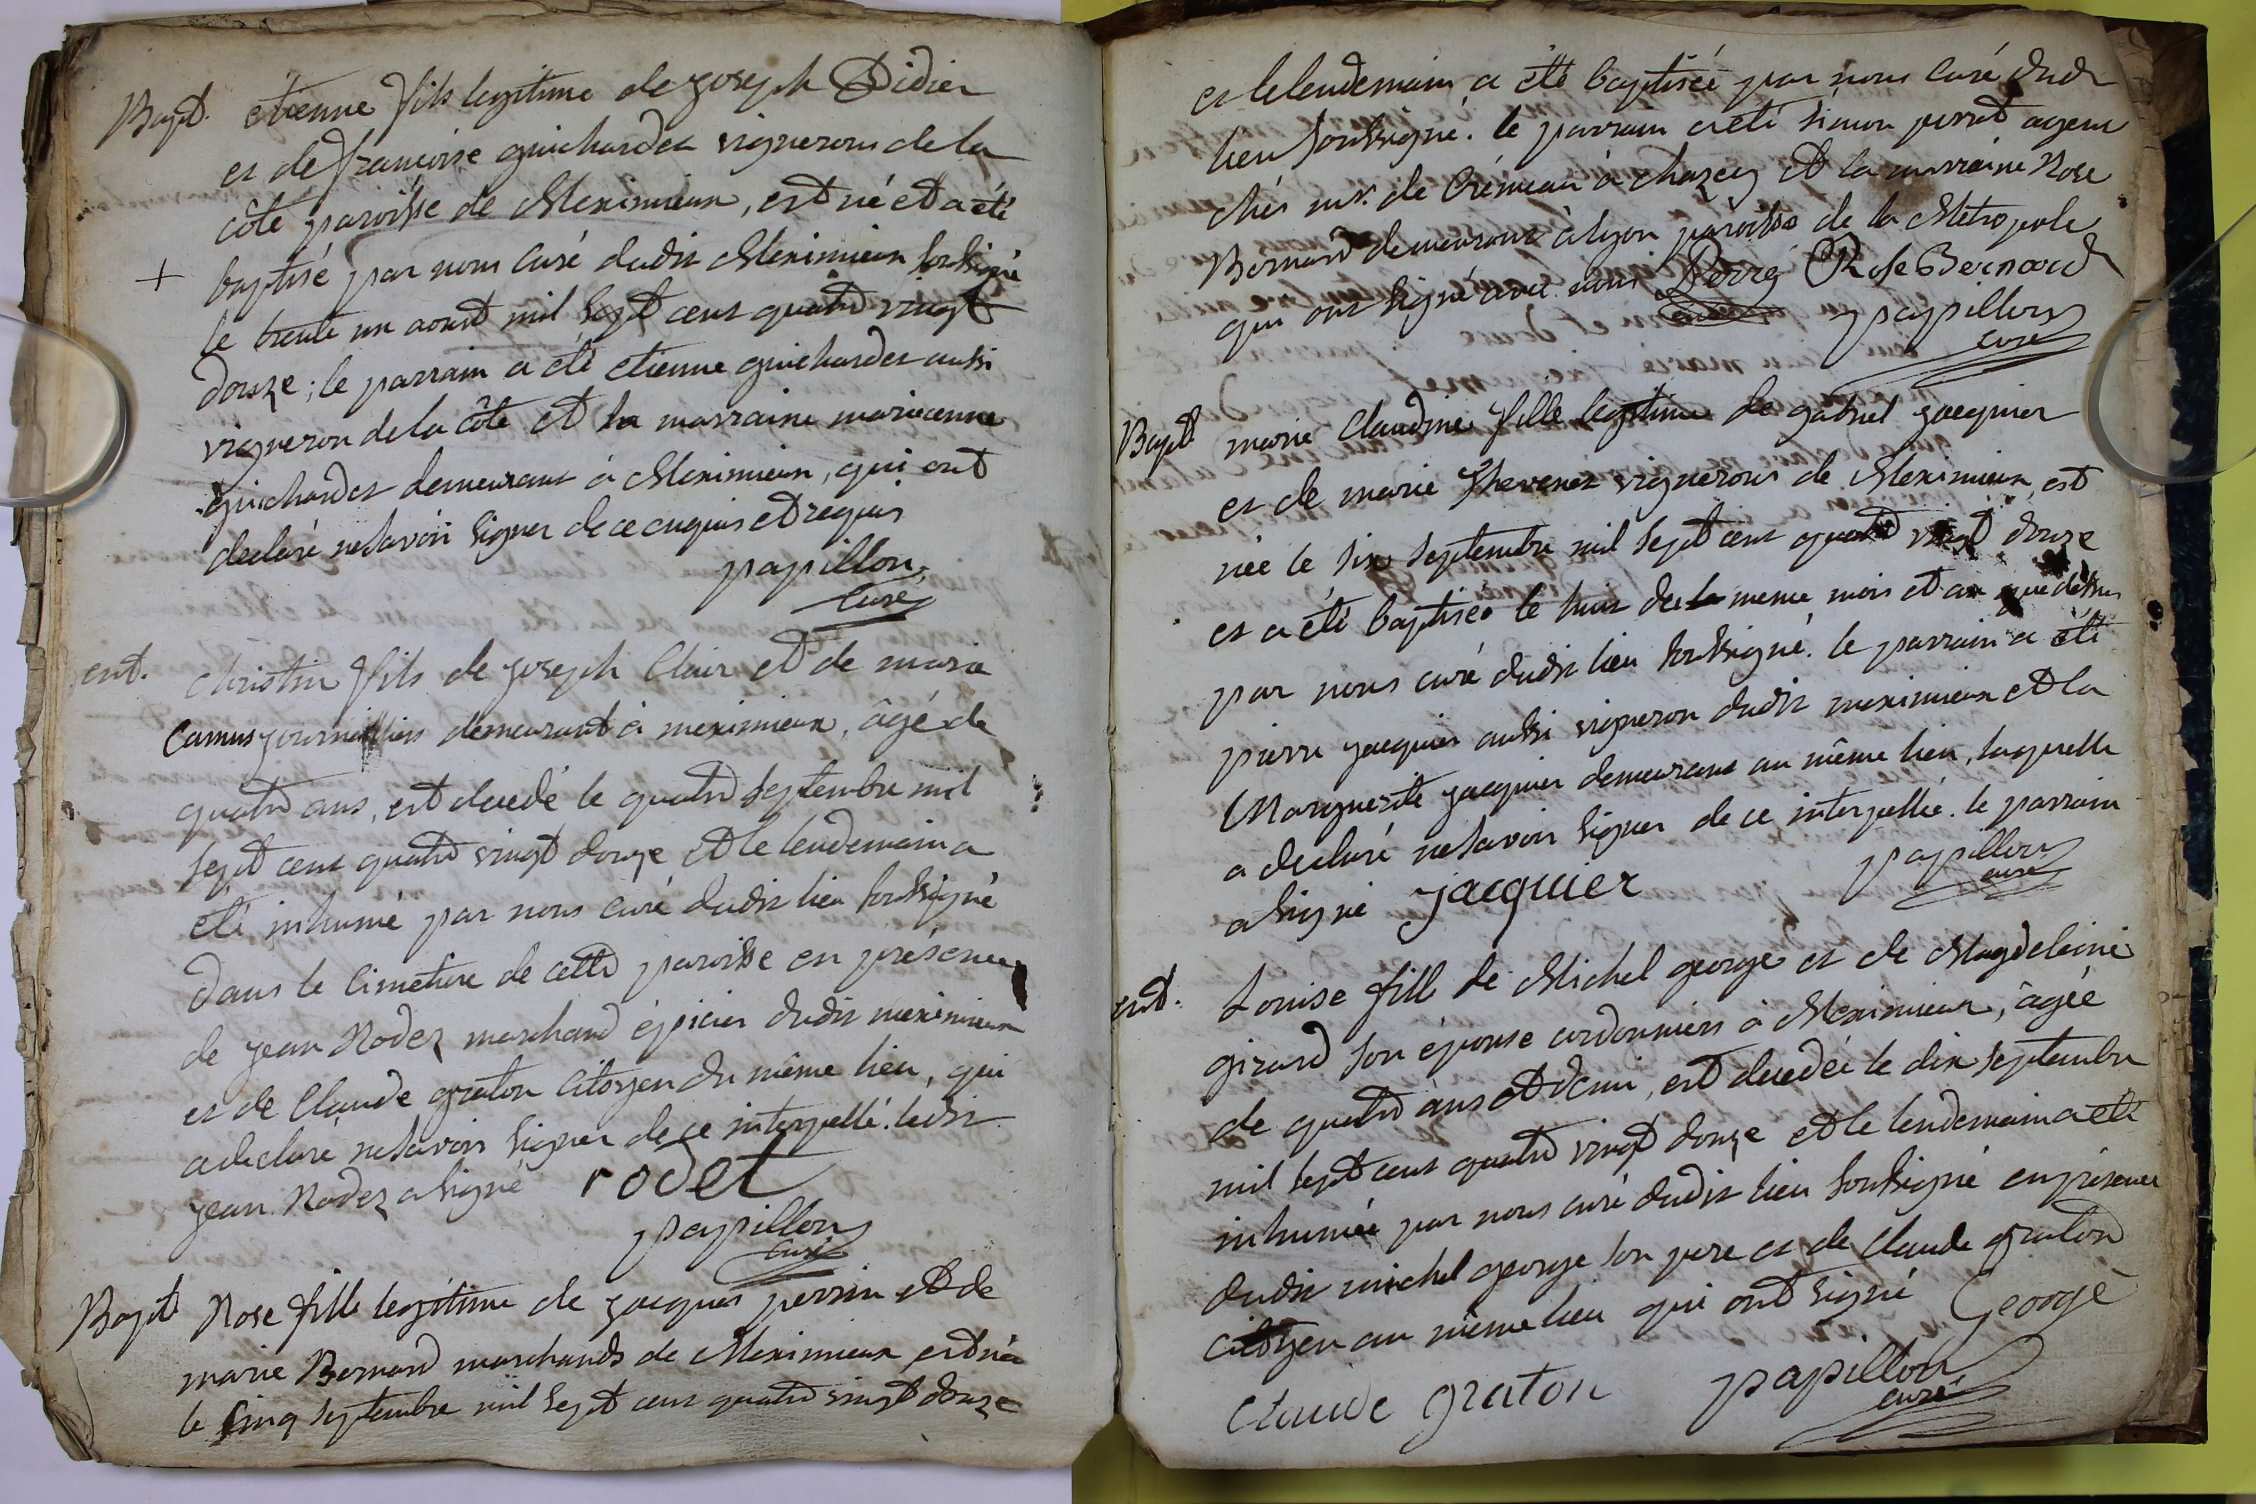 Bapt. étienne fils legitime de joseph Didier
et de francoise guichardet vignerons de la
côte paroisse de Meximieux, est né et a été
+ baptisé par nous curé dudit Meximieux soussigné
le trente un aoust mil sept cent quatre vingt
douze; le parrain a été etienne guichardet aussi
vigneron de la côte et la marraine mariecenne
guichardet demeurant à Meximieux, qui ont
declaré ne savoir signer de ce enquis et requis
papillon
curé
ent. christin fils de joseph Clair et de marie
Camus journalliers demeurant à meximieux, âgé de
quatre ans, est decedé le quatre septembre mil
sept cent quatre vingt douze et le lendemain a
été inhumé par nous curé dudit lieu soussigné
dans le cimetiere de cette paroisse en présence
de jean Rodet marchand épicier dudit meximieux
et de Claude graton citoyen du même lieu, qui
a declaré ne savoir signer de ce interpellé. ledit
jean Rodet a signé rodet
papillon
curé
Bapt Rose fille legitime de jacques perrin et de
marie Bernard marchands de Meximieux est née
le cinq septembre mil sept cent quatre vingt douze
et le lendemain a été baptisée par nous curé dudit
lieu soussigné. le parrain a été simon perret agent
chés mr. de Crémeau à chazey et la marraine Rose
Bernard demeurant à lyon paroisse de la Métropole
qui ont signé avec nous Perret Rose Bernard
papillon
curé
Bapt marie Claudine fille legitime de gabriel jacquier
et de marie thevenet vignerons de Meximieux, est
née le six septembre mil sept cent quatre vingt douze
et a été baptisée le huit de la meme mois et an que dessus
par nous curé dudit lieu soussigné. le parrain a été
pierre jacquier aussi vigneron dudit meximieux et la
Marguerite jacquier demeurant au même lieu, laquelle
a declaré ne savoir signer de ce interpellée. le parrain
a signé jacquier
papillon
curé
ent. Louise fille de Michel george et de Magdeleine
girard son épouse cordonniers à Meximieux, âgée
de quatre ans et demi, est decedée le dix septembre
mil sept cent quatre vingt douze et le lendemain a été
inhumée par nous curé dudit lieu soussigné en présence
dudit michel george son pere et de Claude graton
citoyen au même lieu qui ont signé George
Claude graton papillon
curé